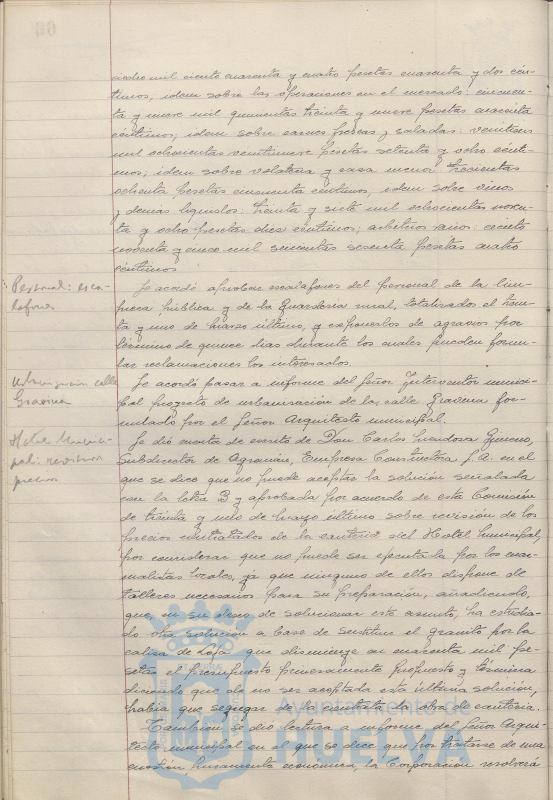 ciocho mil ciento cuarenta y cuatro pesetas cuarenta y dos cén-
timos, idem sobre las operaciones en el mercado: cincuen-
ta y nueve mil quinientas treinta y nueve pesetas cuarenta
céntimos; idem sobre carnes frescas y saladas: veintiseis
mil ochocientas veintinueve pesetas setenta y ocho cénti-
mos; idem sobre volateria y caza menor: trescientas
ochenta pesetas cincuenta céntimos, idem sobre vinos
y demás líquidos: treinta y siete mil ochocientas noven-
ta y ocho pesetas diez céntimos; arbitrios varios: ciento
noventa y cinco mil seiscientas sesenta pesetas cuatro
céntimos.
Personal: esca-
lafones
Se acordó aprobar escalafones del personal de la lim-
pieza pública y de la Guardería rural, totalizados el trein-
ta y uno de marzo último, y exponerlos de agravios por
término de quince días durante los cuales pueden formu-
lar reclamaciones los interesados.
Urbanización calle
Gravina
Se acordó pasar a informe del Señor Interventor munici-
pal proyecto de urbanización de la calle Gravina for-
mulado por el Señor Arquitecto municipal.
Hotel Munici-
pal: revisión
precios
Se dió cuenta de escrito de Don Carlos Gimeno,
Subdirector de Agroman, Empresa Constructora S.A. en el
que se dice que no puede aceptar la solución señalada
con la letra B y aprobada por acuerdo de esta Comisión
de treinta y uno de marzo último sobre revisión de los
precios contratados de la cantería del Hotel Municipal,
por considerar que no puede ser ejecutada por los mar-
molistas locales, ya que ninguno de ellos dispone de
talleres necesarios para su preparación, añadiendo,
que, en su deseo de solucionar este asunto, ha estudia-
do otra solución a base de sustituir el granito por la
caliza de que disminuye en cuarenta mil pe-
setas el presupuesto primeramente propuesto y termina
diciendo que de no ser aceptada esta última solución,
habría que segregar de la contrata la obra de cantería.
También se dió lectura a informe del Señor Arqui-
tecto municipal en el que se dice que por tratarse de una
cuestión puramente económica, la Corporación resolverá
Ayuntamiento de
HUELVA